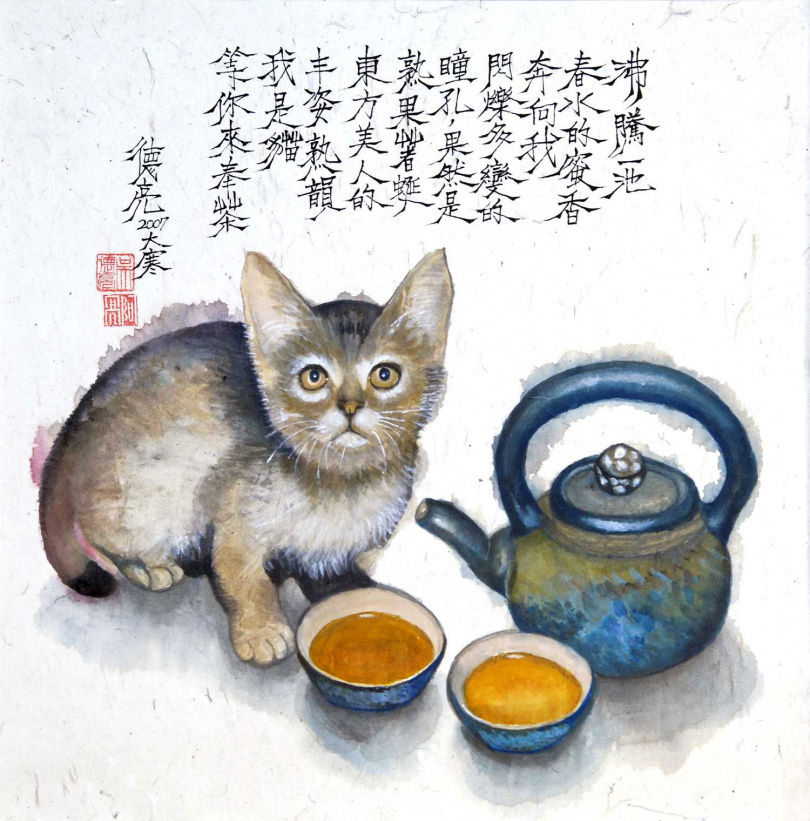 沸騰一池
春水的蜜香
奔向我
閃爍多變的
瞳孔，果然是
熟果著蜒
東方美人的
丰姿熟韻
我是貓
等你來奉茶
德亮
2007大寒
吳德亮